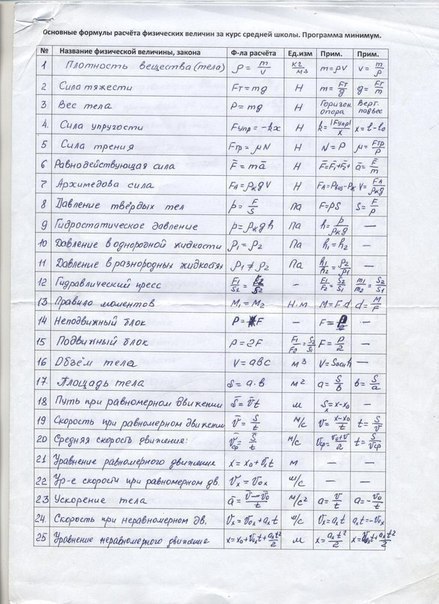 Основные формулы расчёта физических величин за курс средней школы. Программа минимум.
№ Название физической величины, закона Ф-ла расчёта Ед.изм Прим. Прим.
1 Плотность вещества (тела) ρ = m/V кг/м³ m = ρV v = m/ρ
2 Сила тяжести Fт = mg Н m = Fт/g g = Fт/m
3 Вес тела P = mg Н Горизон. опора Верт. подвес
4 Сила упругости Fупр = -kx Н k = |Fупр|/x x = l - l₀
5 Сила трения Fтр = μN Н N = P μ = Fтр/P
6 Равнодействующая сила F̄ = mā Н F̄ = F̄₁+F̄₂+ ā = F̄/m
7 Архимедова сила Fа = ρжgV Н V = Fа/ρжg
8 Давление твёрдых тел p = F/S Па F = pS S = F/p
9 Гидростатическое давление p = ρжgh Па h = p/ρжg —
10 Давление в однородной жидкости ρ₁ = ρ₂ Па h₁ = h₂ —
11 Давление в разнородных жидкостях ρ₁ ≠ ρ₂ Па h₁/h₂ = ρ₂/ρ₁ —
12 Гидравлический пресс — F₁/F₂ = S₁/S₂
13 Правило моментов M₁ = M₂ Н·м M = F·d d = M/F
14 Неподвижный блок P = F — —
15 Подвижный блок P = 2F F = P/2 —
16 Объём тела V = abc м³ V = Sоснh —
17 Площадь тела S = a·b м² a = S/b b = S/a
18 Путь при равномерном движении м Sₓ = x - x₀ —
19 Скорость при равномерном движении v̄ = S/t м/с v = x-x₀/t t = S/v
20 Средняя скорость движения: v̄ср = S/t м/с vср = v₀+v/2 t = S/vср
21 Уравнение равномерного движения x = x₀ + vₓt м — —
22 Ур-е скорости при равномерном дв. vₓ = v₀ₓ м/с — —
23 Ускорение тела ā = v̄-v̄₀/t м/с² a = v/t a = -v₀/t
24. Скорость при неравномерном дв. vₓ = v₀ₓ + aₓt м/с vₓ = aₓt aₓt = -v₀ₓ
25 Уравнение неравномерного движения x = x₀ + v₀ₓt + aₓt²/2 м x = aₓt²/2